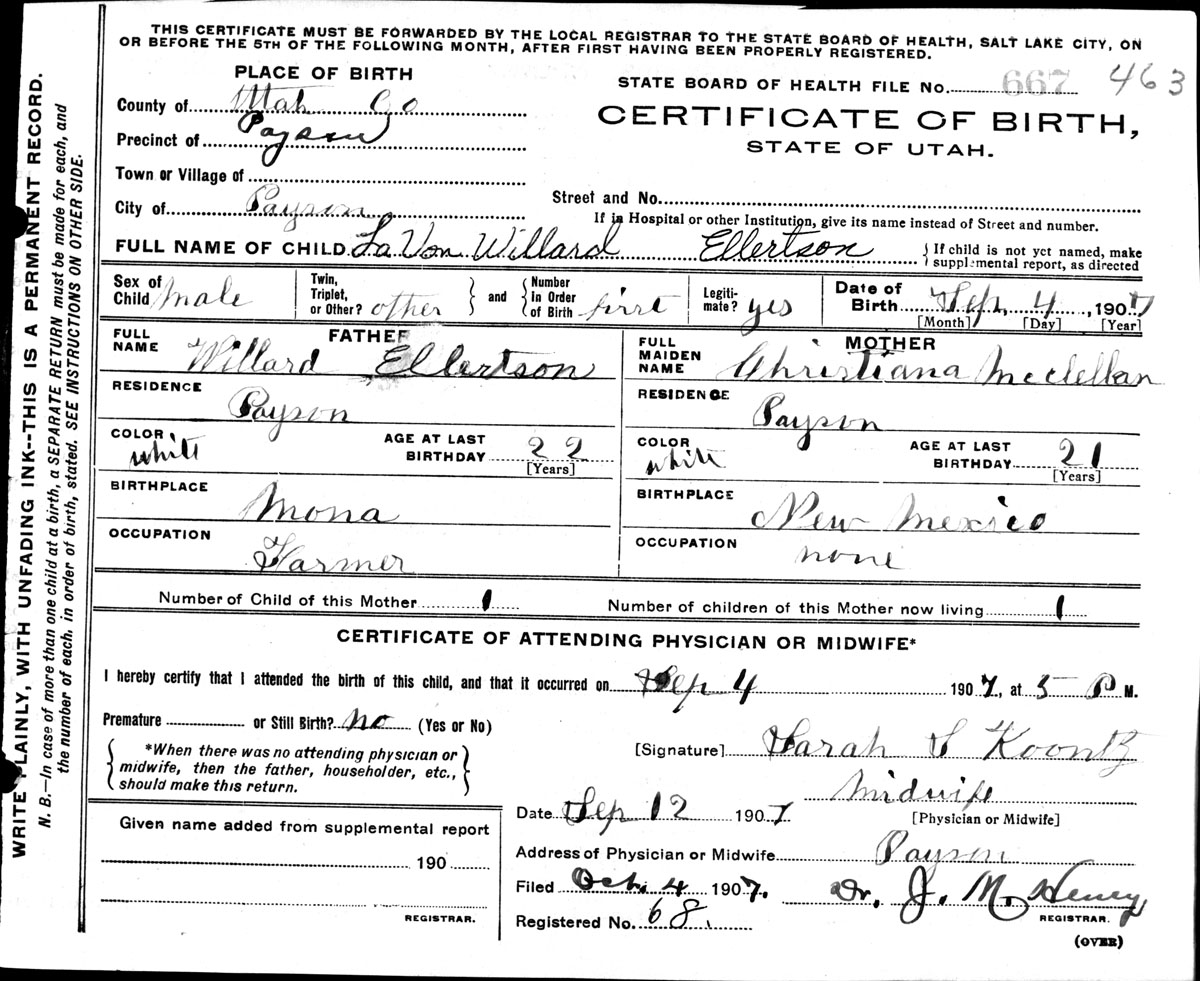 THIS CERTIFICATE MUST BE FORWARDED BY THE LOCAL REGISTRAR TO THE STATE BOARD OF HEALTH, SALT LAKE CITY, ON
OR BEFORE THE 5TH OF THE FOLLOWING MONTH, AFTER FIRST HAVING BEEN PROPERLY REGISTERED.
WRITE PLAINLY, WITH UNFADING INK--THIS IS A PERMANENT RECORD.
N. B.—In case of more than one child at a birth, a SEPARATE RETURN must be made for each, and
the number of each, in order of birth, stated. SEE INSTRUCTIONS ON OTHER SIDE.
PLACE OF BIRTH
County of Utah Co
Precinct of Payson
Town or Village of
City of Payson
STATE BOARD OF HEALTH FILE No. 667 463
CERTIFICATE OF BIRTH,
STATE OF UTAH.
Street and No.
If in Hospital or other Institution, give its name instead of Street and number.
FULL NAME OF CHILD La Von Willard Ellertson
If child is not yet named, make
supplemental report, as directed
Sex of Child male
Twin, Triplet, or Other? other
and
Number In Order of Birth first
Legitimate? yes
Date of Birth Sep. 4, 1907
[Month] [Day] [Year]
FATHER
FULL NAME Willard Ellertson
RESIDENCE Payson
COLOR white
AGE AT LAST BIRTHDAY 22
[Years]
BIRTHPLACE Mona
OCCUPATION Farmer
MOTHER
FULL MAIDEN NAME Christiana McClellan
RESIDENCE Payson
COLOR white
AGE AT LAST BIRTHDAY 21
[Years]
BIRTHPLACE New Mexico
OCCUPATION none
Number of Child of this Mother 1
Number of children of this Mother now living 1
CERTIFICATE OF ATTENDING PHYSICIAN OR MIDWIFE*
I hereby certify that I attended the birth of this child, and that it occurred on Sep 4 1907, at 5 P M.
Premature or Still Birth? no (Yes or No)
*When there was no attending physician or
midwife, then the father, householder, etc.,
should make this return.
[Signature] Sarah S Koontz
Midwife
[Physician or Midwife]
Date Sep 12 1907.
Address of Physician or Midwife Payson
Given name added from supplemental report
190
REGISTRAR.
Filed Oct. 4 1907. Dr. J. M. Heney
REGISTRAR.
Registered No. 68.
(OVER)